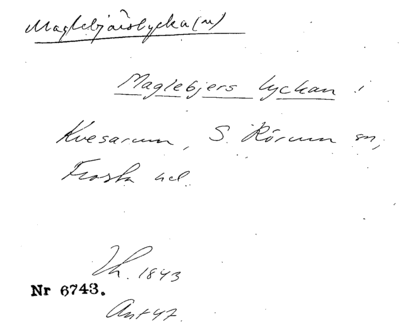 Maglebjärslycka(n)
Maglebjers lyckan i
Kvesarum, S. Rörum sn,
Frosta hd.
Lh. 1843
Nr 6743.
Ant 47.